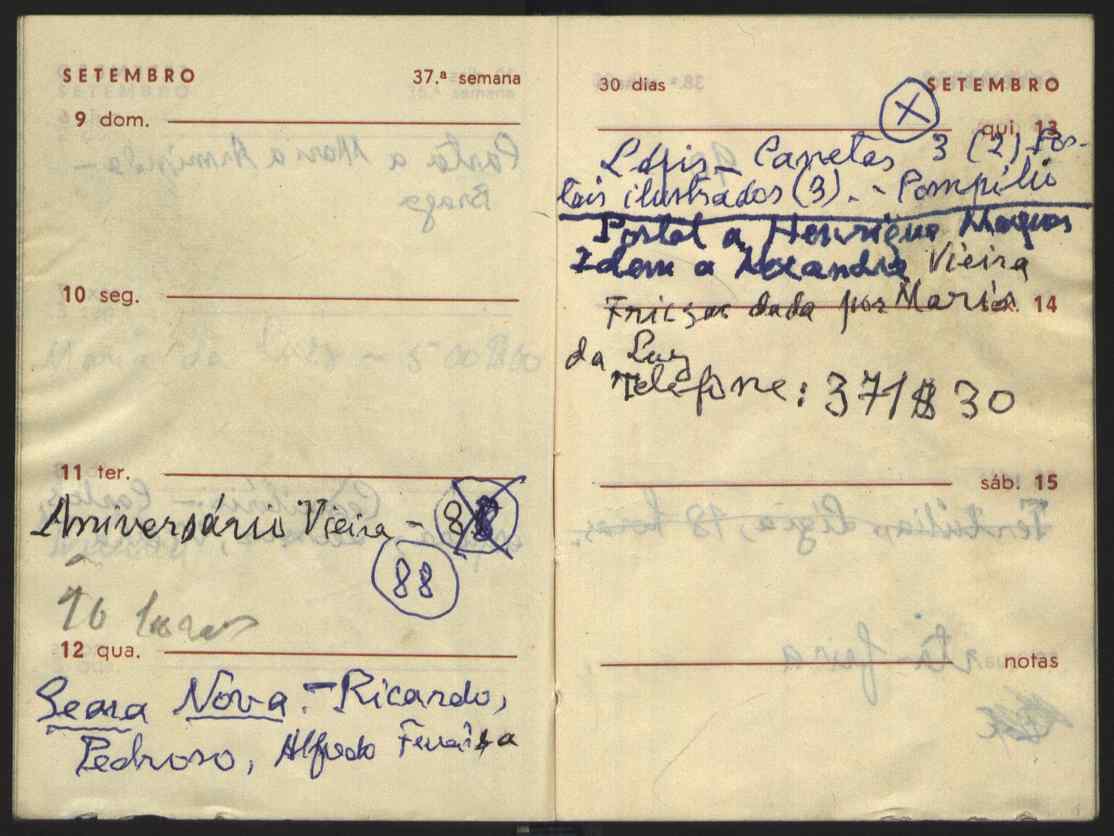 SETEMBRO 37.ª semana
9 dom.
10 seg.
11 ter.
Aniversário Vieira - 88
88
16 horas
12 qua.
Seara Nova. - Ricardo,
Pedroso, Alfredo Ferreira
30 dias SETEMBRO
X
qui. 13
Lápis - Canetas 3 (2) Pos-
tais ilustrados (3). - Pompílio
Postal a Henrique
Idem a Alexandre Vieira
14
dada por Maria
da Luz
Telefone: 371 30
sáb. 15
notas